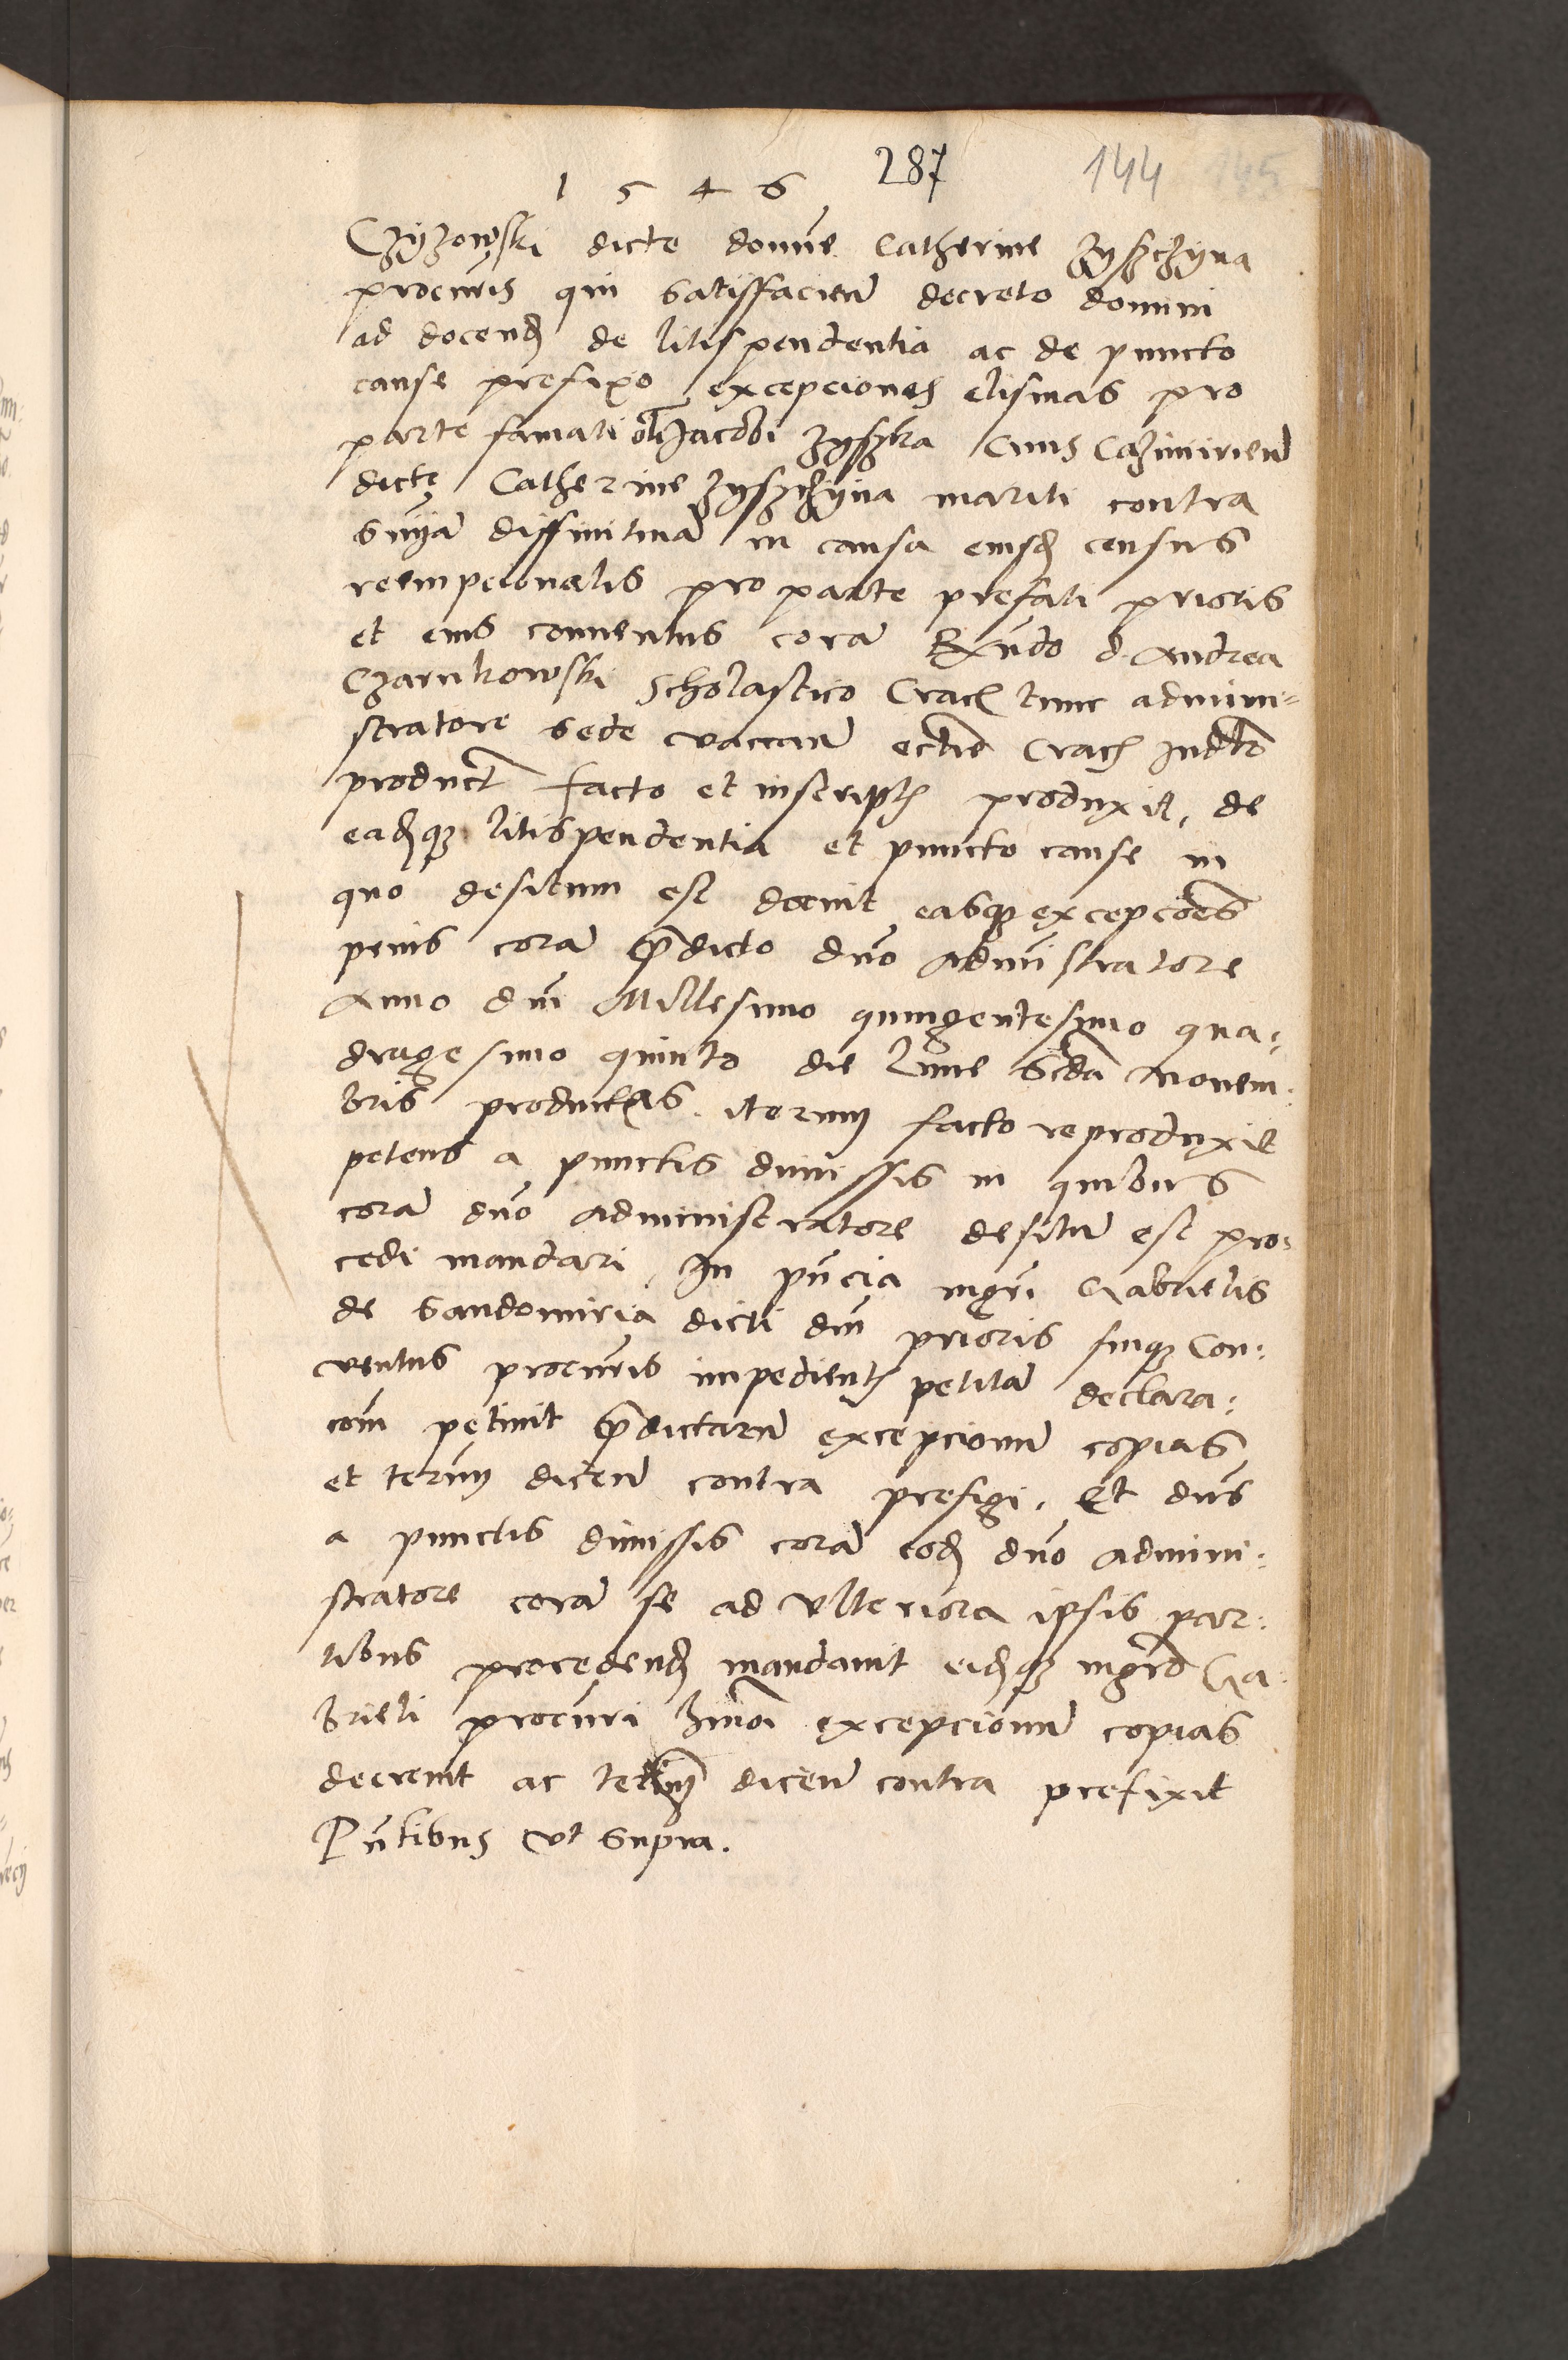 1 5 4 6 287 144 145
Czyzowski dicte domine Catherine Zyszchyna
procuris qui satisfacien decreto domini
ad docend de litispendentia ac de puncto
cause prefixo excepciones elisivas pro
parte famati olim Jacobi Zyszka Civis Cazimirien
dicte Catherine Zyszchyna mariti contra
snyam diffinitivam in causa eiusd census
reempcionalis pro parte prefati prioris
et eius conventus coram Rndo d. Andrea
Czarnkowski Scholastico Crac tunc admini=
stratore sede vaccan ecclie Crac
product facto et inscriptis produxit, de
eadqz litispendentia et puncto cause in
quo desitum est docuit easqz excepciones
prius coram predicto dno administratore
Anno dni Millesimo quingentesimo qua=
dragesimo quinto die Lune scda Novem=
bris productas iterum facto reproduxit
petens a punctis dimissis in quibus
coram dno administratore desitum est pro=
cedi mandari, In pncia mgri Gabrielis
de Sandomiria dicti dni prioris suiqz Con=
ventus procuris impedient petitam declara=
com petivit predictarum excepcionum copias
et termin dicen contra prefigi, Et dns
a punctis dimissis coram eod dno admini=
stratore coram se ad ulteriora ipsis par=
tibus procedend mandavit eidqz mgro Ga=
brieli procuri hmoi excepcionum copias
decrevit ac termin dicen contra prefixit
Pntibus ut supra.